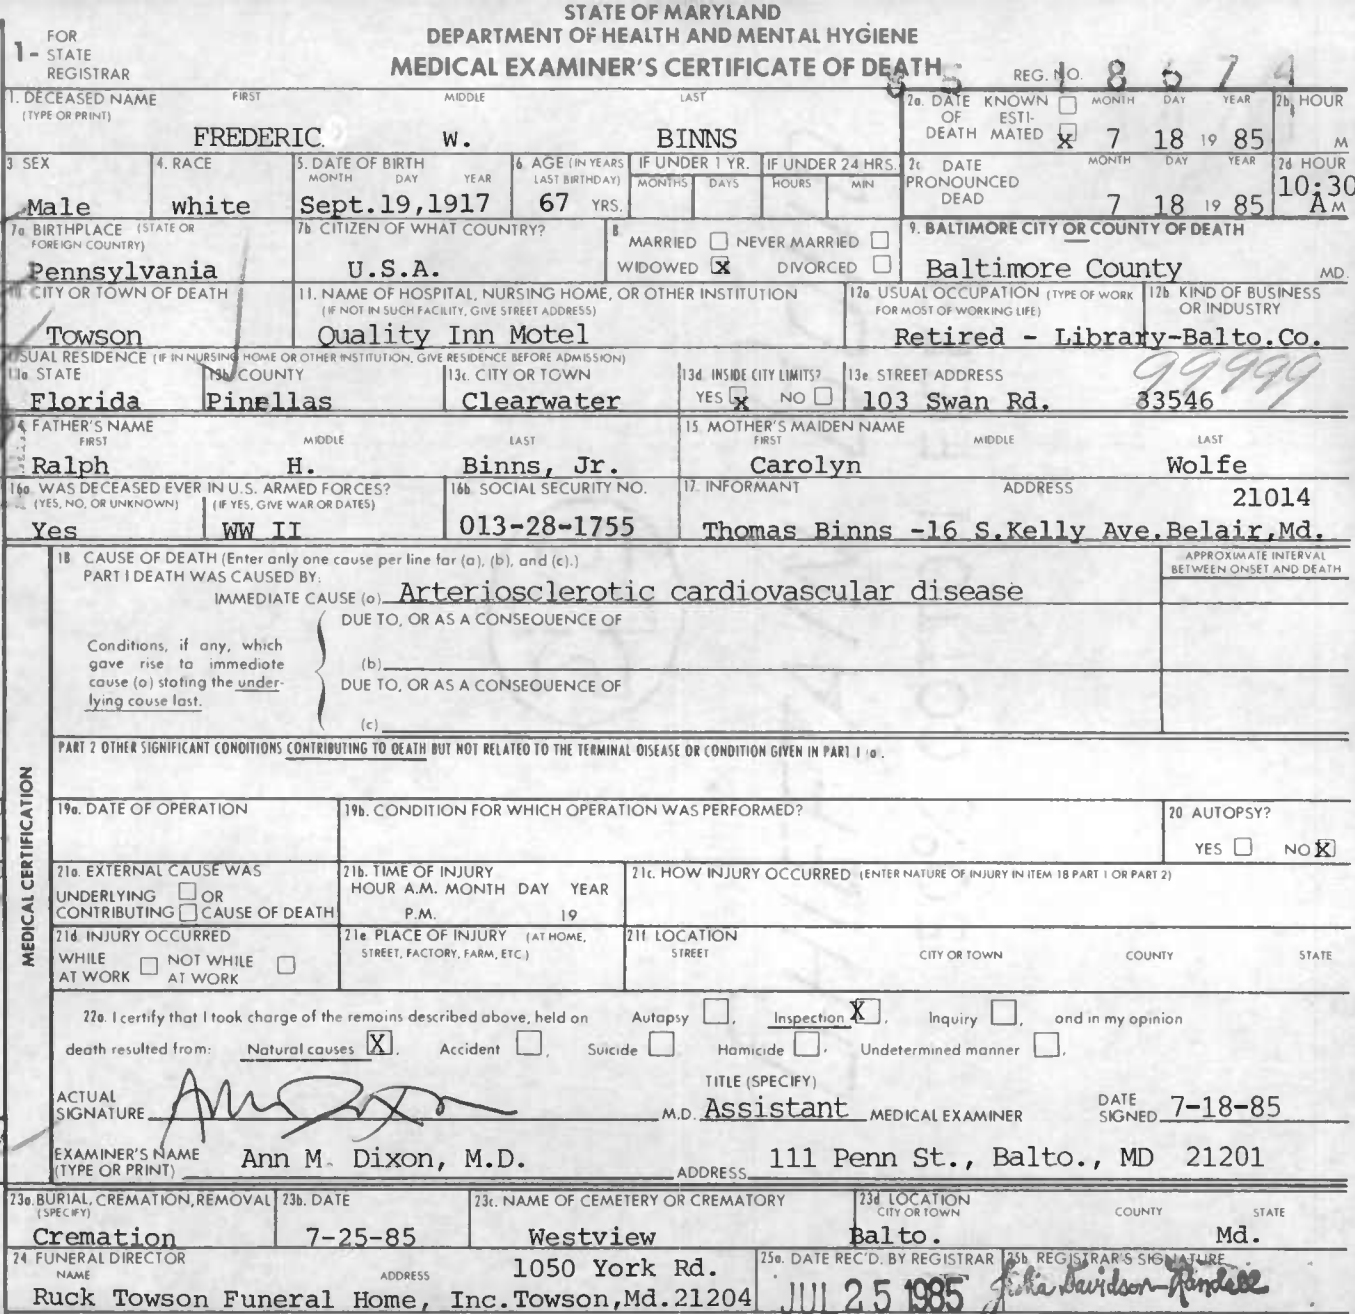 STATE OF MARYLAND
DEPARTMENT OF HEALTH AND MENTAL HYGIENE
MEDICAL EXAMINER'S CERTIFICATE OF DEATH
1 - FOR STATE REGISTRAR
REG. NO. 85 18674
1. DECEASED NAME (TYPE OR PRINT) FIRST MIDDLE LAST
FREDERIC W. BINNS
2a. DATE OF DEATH KNOWN ☐ ESTIMATED ☒ MONTH DAY YEAR 2b. HOUR
7 18 19 85 M
3 SEX 4. RACE 5. DATE OF BIRTH MONTH DAY YEAR 6. AGE (IN YEARS LAST BIRTHDAY) IF UNDER 1 YR. MONTHS DAYS IF UNDER 24 HRS. HOURS MIN
Male white Sept.19,1917 67 YRS.
2c DATE PRONOUNCED DEAD MONTH DAY YEAR 2d HOUR
7 18 19 85 10:30 A M
7a BIRTHPLACE (STATE OR FOREIGN COUNTRY) 7b CITIZEN OF WHAT COUNTRY?
Pennsylvania U.S.A.
8 MARRIED ☐ NEVER MARRIED ☐
WIDOWED ☒ DIVORCED ☐
9. BALTIMORE CITY OR COUNTY OF DEATH
Baltimore County MD.
10. CITY OR TOWN OF DEATH 11. NAME OF HOSPITAL, NURSING HOME, OR OTHER INSTITUTION (IF NOT IN SUCH FACILITY, GIVE STREET ADDRESS)
Towson Quality Inn Motel
12a USUAL OCCUPATION (TYPE OF WORK FOR MOST OF WORKING LIFE) 12b KIND OF BUSINESS OR INDUSTRY
Retired - Library-Balto.Co.
USUAL RESIDENCE (IF IN NURSING HOME OR OTHER INSTITUTION, GIVE RESIDENCE BEFORE ADMISSION)
13a STATE 13b COUNTY 13c. CITY OR TOWN 13d. INSIDE CITY LIMITS? 13e STREET ADDRESS 99999
Florida Pinellas Clearwater YES ☒ NO ☐ 103 Swan Rd. 33546
14 FATHER'S NAME FIRST MIDDLE LAST 15. MOTHER'S MAIDEN NAME FIRST MIDDLE LAST
Ralph H. Binns, Jr. Carolyn Wolfe
16a WAS DECEASED EVER IN U.S. ARMED FORCES? (YES, NO, OR UNKNOWN) (IF YES, GIVE WAR OR DATES) 16b SOCIAL SECURITY NO. 17. INFORMANT ADDRESS 21014
Yes WW II 013-28-1755 Thomas Binns -16 S.Kelly Ave.Belair,Md.
MEDICAL CERTIFICATION
18 CAUSE OF DEATH (Enter only one cause per line for (a), (b), and (c).) APPROXIMATE INTERVAL BETWEEN ONSET AND DEATH
PART I DEATH WAS CAUSED BY:
IMMEDIATE CAUSE (a) Arteriosclerotic cardiovascular disease
DUE TO, OR AS A CONSEQUENCE OF
Conditions, if any, which gave rise to immediate cause (a) stating the underlying cause last.
(b)
DUE TO, OR AS A CONSEQUENCE OF
(c)
PART 2 OTHER SIGNIFICANT CONDITIONS CONTRIBUTING TO DEATH BUT NOT RELATED TO THE TERMINAL DISEASE OR CONDITION GIVEN IN PART 1 (a).
19a. DATE OF OPERATION 19b. CONDITION FOR WHICH OPERATION WAS PERFORMED? 20 AUTOPSY?
YES ☐ NO ☒
21a. EXTERNAL CAUSE WAS UNDERLYING ☐ OR CONTRIBUTING ☐ CAUSE OF DEATH
21b. TIME OF INJURY HOUR A.M. MONTH DAY YEAR P.M. 19
21c. HOW INJURY OCCURRED (ENTER NATURE OF INJURY IN ITEM 18 PART 1 OR PART 2)
21d INJURY OCCURRED WHILE AT WORK ☐ NOT WHILE AT WORK ☐
21e PLACE OF INJURY (AT HOME, STREET, FACTORY, FARM, ETC.)
21f LOCATION STREET CITY OR TOWN COUNTY STATE
22a. I certify that I took charge of the remains described above, held on Autopsy ☐, Inspection ☒, Inquiry ☐, and in my opinion
death resulted from: Natural causes ☒, Accident ☐, Suicide ☐ Homicide ☐, Undetermined manner ☐,
ACTUAL SIGNATURE Ann Dixon M.D. TITLE (SPECIFY) Assistant MEDICAL EXAMINER DATE SIGNED 7-18-85
EXAMINER'S NAME (TYPE OR PRINT) Ann M. Dixon, M.D. ADDRESS 111 Penn St., Balto., MD 21201
23a. BURIAL, CREMATION, REMOVAL (SPECIFY) 23b. DATE 23c. NAME OF CEMETERY OR CREMATORY 23d LOCATION CITY OR TOWN COUNTY STATE
Cremation 7-25-85 Westview Balto. Md.
24 FUNERAL DIRECTOR NAME ADDRESS 1050 York Rd.
Ruck Towson Funeral Home, Inc.Towson,Md.21204
25a. DATE REC'D. BY REGISTRAR 25b. REGISTRAR'S SIGNATURE
JUL 25 1985 Julia Davidson-Randall